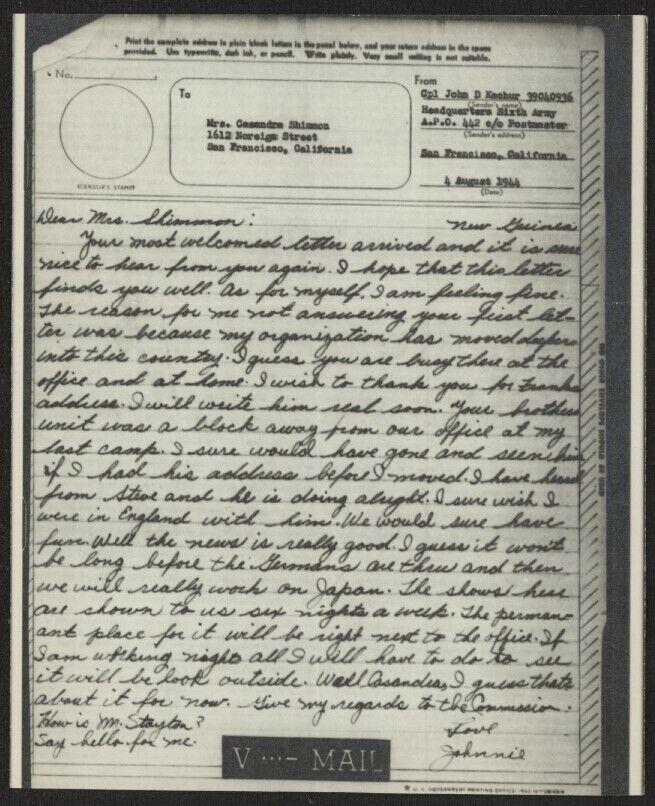 Print the complete address in plain block letters in the panel below, and your return address in the space
provided. Use typewriter, dark ink, or pencil. Write plainly. Very small writing is not suitable.
No.
(CENSOR'S STAMP)
To
Mrs. Casandra Shimmon
1612 Noreiga Street
San Francisco, California
From
Cpl John D Kachur 39040936
(Sender's name)
Headquarters Sixth Army
A.P.O. 442 c/o Postmaster
(Sender's address)
San Francisco, California
4 August 1944
(Date)
Dear Mrs. Shimmon: New Guinea
Your most welcomed letter arrived and it is sure
nice to hear from you again. I hope that this letter
finds you well. As for myself, I am feeling fine.
The reason for me not answering your first let-
ter was because my organization has moved deeper
into this country. I guess you are busy there at the
office and at home. I wish to thank you for Franks
address. I will write him real soon. Your brothers
unit was a block away from our office at my
last camp. I sure would have gone and seen him
if I had his address before I moved. I have heard
from Steve and he is doing alright. I sure wish I
were in England with him. We would sure have
fun. Well the news is really good. I guess it won't
be long before the Germans are thru and then
we will really work on Japan. The shows here
are shown to us six nights a week. The perman-
ant place for it will be right next to the office. If
I am working night all I will have to do to see
it will be look outside. Well Casandra, I guess thats
about it for now. Give my regards to the Commission.
How is Mr. Stayton? Love
Say hello for me. Johnnie
V ···– MAIL
U. S. GOVERNMENT PRINTING OFFICE